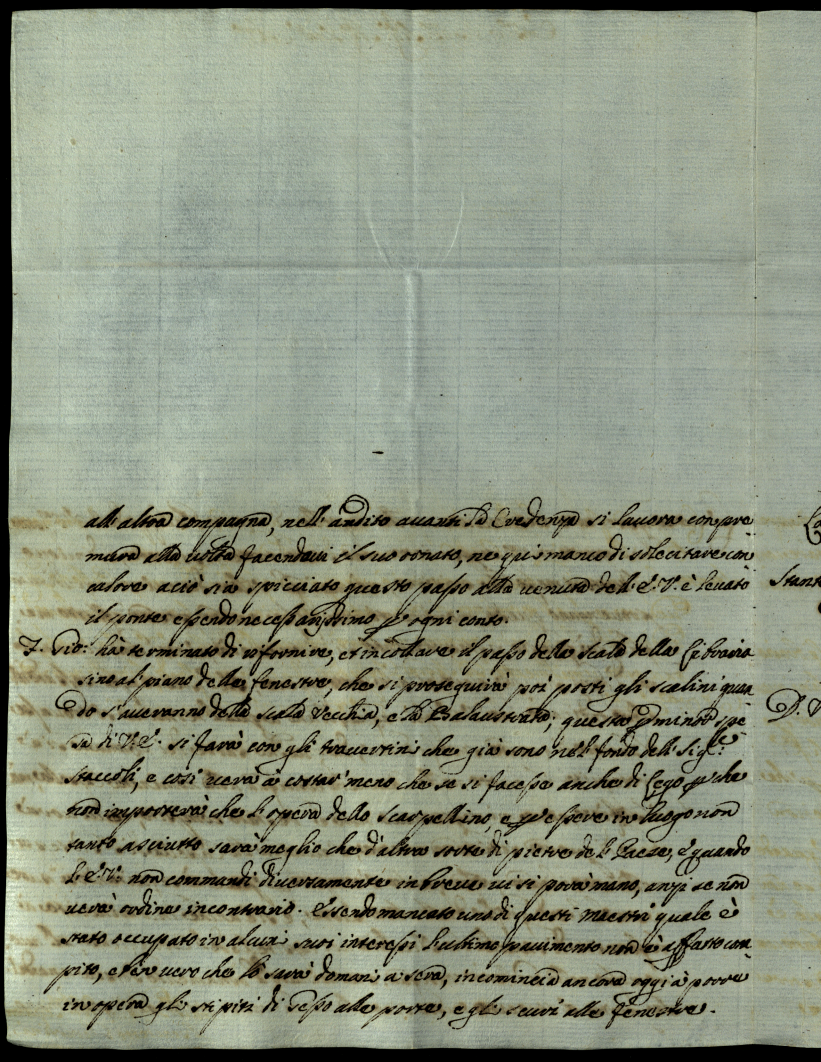 all'altra compagna, nell'andito avanti la Credenza si lavora con pre
mura alla volta facendovi il suo ornato, ne qui manco di solecitare con
calore aciò sia spicciato questo passo alla venuta dell'E.V. è levato
il ponte essendo necessarijssimo p ogni conto.
7. Gio: hà terminato di rifornire, et incollare il passo della scala della Libraria
sino al piano delle fenestre, che si proseguirà poi posti gli scalini quan
do s'averanno della scala vecchia, e la Balaustrata; questa p minor spe
sa di V.E. si farà con gli travertini che già sono nel fondo dell Sig.
Staccoli, e così verà à costar meno che se si facesse anche di Legno p che
non importerà che l'opera dello Scarpellino, e p essere in luogo non
tanto asciutto sarà meglio che d'altra sorte di pietre del Paese, e quando
l'E.V. non commandi diversamente in breve vi si porà mano, anzi se non
verà ordine incontrario. Essendo mancato uno di questi maestri quale è
stato occupato in alcuni suoi interessi l'ultimo pavimento non è affatto com
pito, e ben vero che lo sarà domani a sera, incomincia ancora oggi à porre
in opera gli stipiti di gesso alle porte, e gli scuri alle fenestre.
Stant
D. V